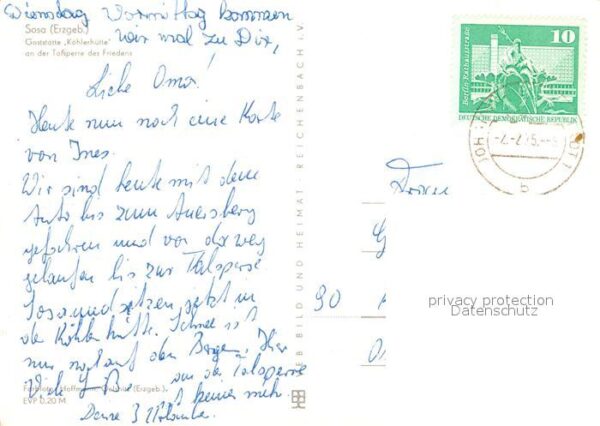 Dienstag Vormittag kommen
wir mal zu Dir,
Sosa (Erzgeb.)
Gaststätte "Köhlerhütte"
an der Talsperre des Friedens
Liebe Oma!
Heute nun noch eine Karte
von Ines.
Wir sind heute mit dem
Auto bis zum Auersberg
gefahren und von da weg
gelaufen bis zur Talsperre
Sosa und sitzen jetzt in
der Köhlerhütte. Schnee ist
nur noch auf den Bergen. Hier
an der Talsperre
ist keiner mehr.
Viele
Deine 3
EVP 0,20 M
BILD UND HEIMAT REICHENBACH I. V.
10
Berlin, Rathausstraße
DEUTSCHE DEMOKRATISCHE REPUBLIK
Frau
90
privacy protection
Datenschutz